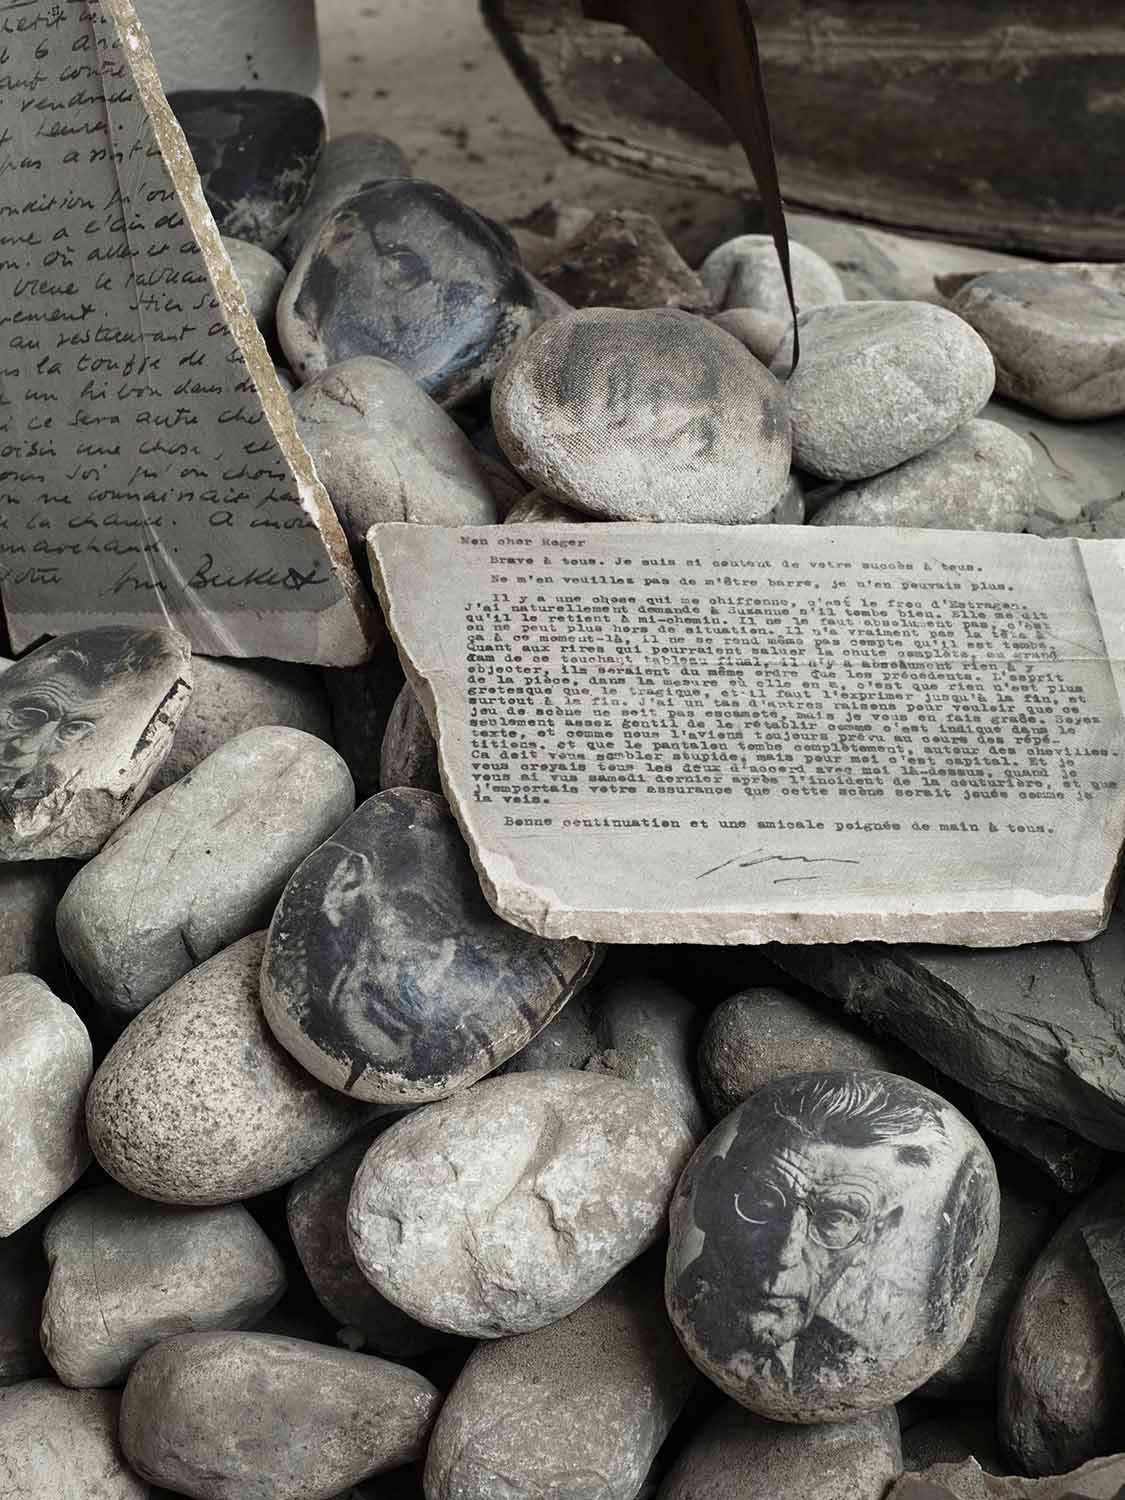 petit
6 ans
vendredi
heures.
pas assister
condition qu'on
a l'air de
on. Où aller et
vieux le tableau
vement. Hier
au restaurant
la touffe de
un hibou dans
ce sera autre
choisir une chose, et
qu'on
on ne connaissait pas
la chance. A
marchand.
votre Sam Beckett
Mon cher Roger
Bravo à tous. Je suis si content de votre succès à tous.
Ne m'en veuillez pas de m'être barre, je n'en pouvais plus.
Il y a une chose qui me chiffonne, c'est le froc d'Estragon.
J'ai naturellement demande à Suzanne s'il tombe bien. Elle me dit
qu'il le retient à mi-chemin. Il ne le faut absolument pas, c'est
on ne peut plus hors de situation. Il n'a vraiment pas la tête à
ça à ce moment-là, il ne se rend même pas compte qu'il est tombe.
Quant aux rires qui pourraient saluer la chute complète, au grand
dam de ce touchant tableau final, il n'y a absolument rien à y
objecter, ils seraient du même ordre que les précédents. L'esprit
de la pièce, dans la mesure où elle en a, c'est que rien n'est plus
grotesque que le tragique, et il faut l'exprimer jusqu'à la fin, et
surtout à la fin. J'ai un tas d'autres raisons pour vouloir que ce
jeu de scène ne soit pas escamoté, mais je vous en fais grâce. Soyez
seulement assez gentil de le rétablir comme c'est indique dans le
texte, et comme nous l'avions toujours prévu au cours des répé-
titions. et que le pantalon tombe complètement, autour des chevilles.
Ca doit vous sembler stupide, mais pour moi c'est capital. Et je
vous croyais tous les deux d'accord avec moi là-dessus, quand je
vous ai vus samedi dernier après l'incident de la couturière, et que
j'emportais votre assurance que cette scène serait jouée comme je
la vois.
Bonne continuation et une amicale poignée de main à tous.
Sam